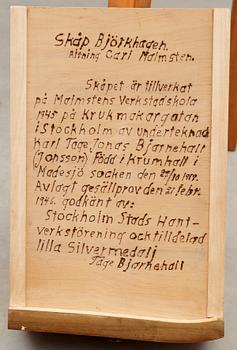 Skåp Björkhagen.
Ritning Carl Malmsten.
Skåpet är tillverkat
på Malmstens Verkstadskola
1945 på Krukmakargatan
i Stockholm av undertecknad
Karl Tage Jonas Bjärnehall
(Jonsson) Född i Krumhall i
Madesjö socken den
Avlagt gesällprov den 21 febr.
1946. godkänt av:
Stockholm Stads Hant-
verksförening och tilldelad
lilla Silvermedalj
Tage Bjärnehall